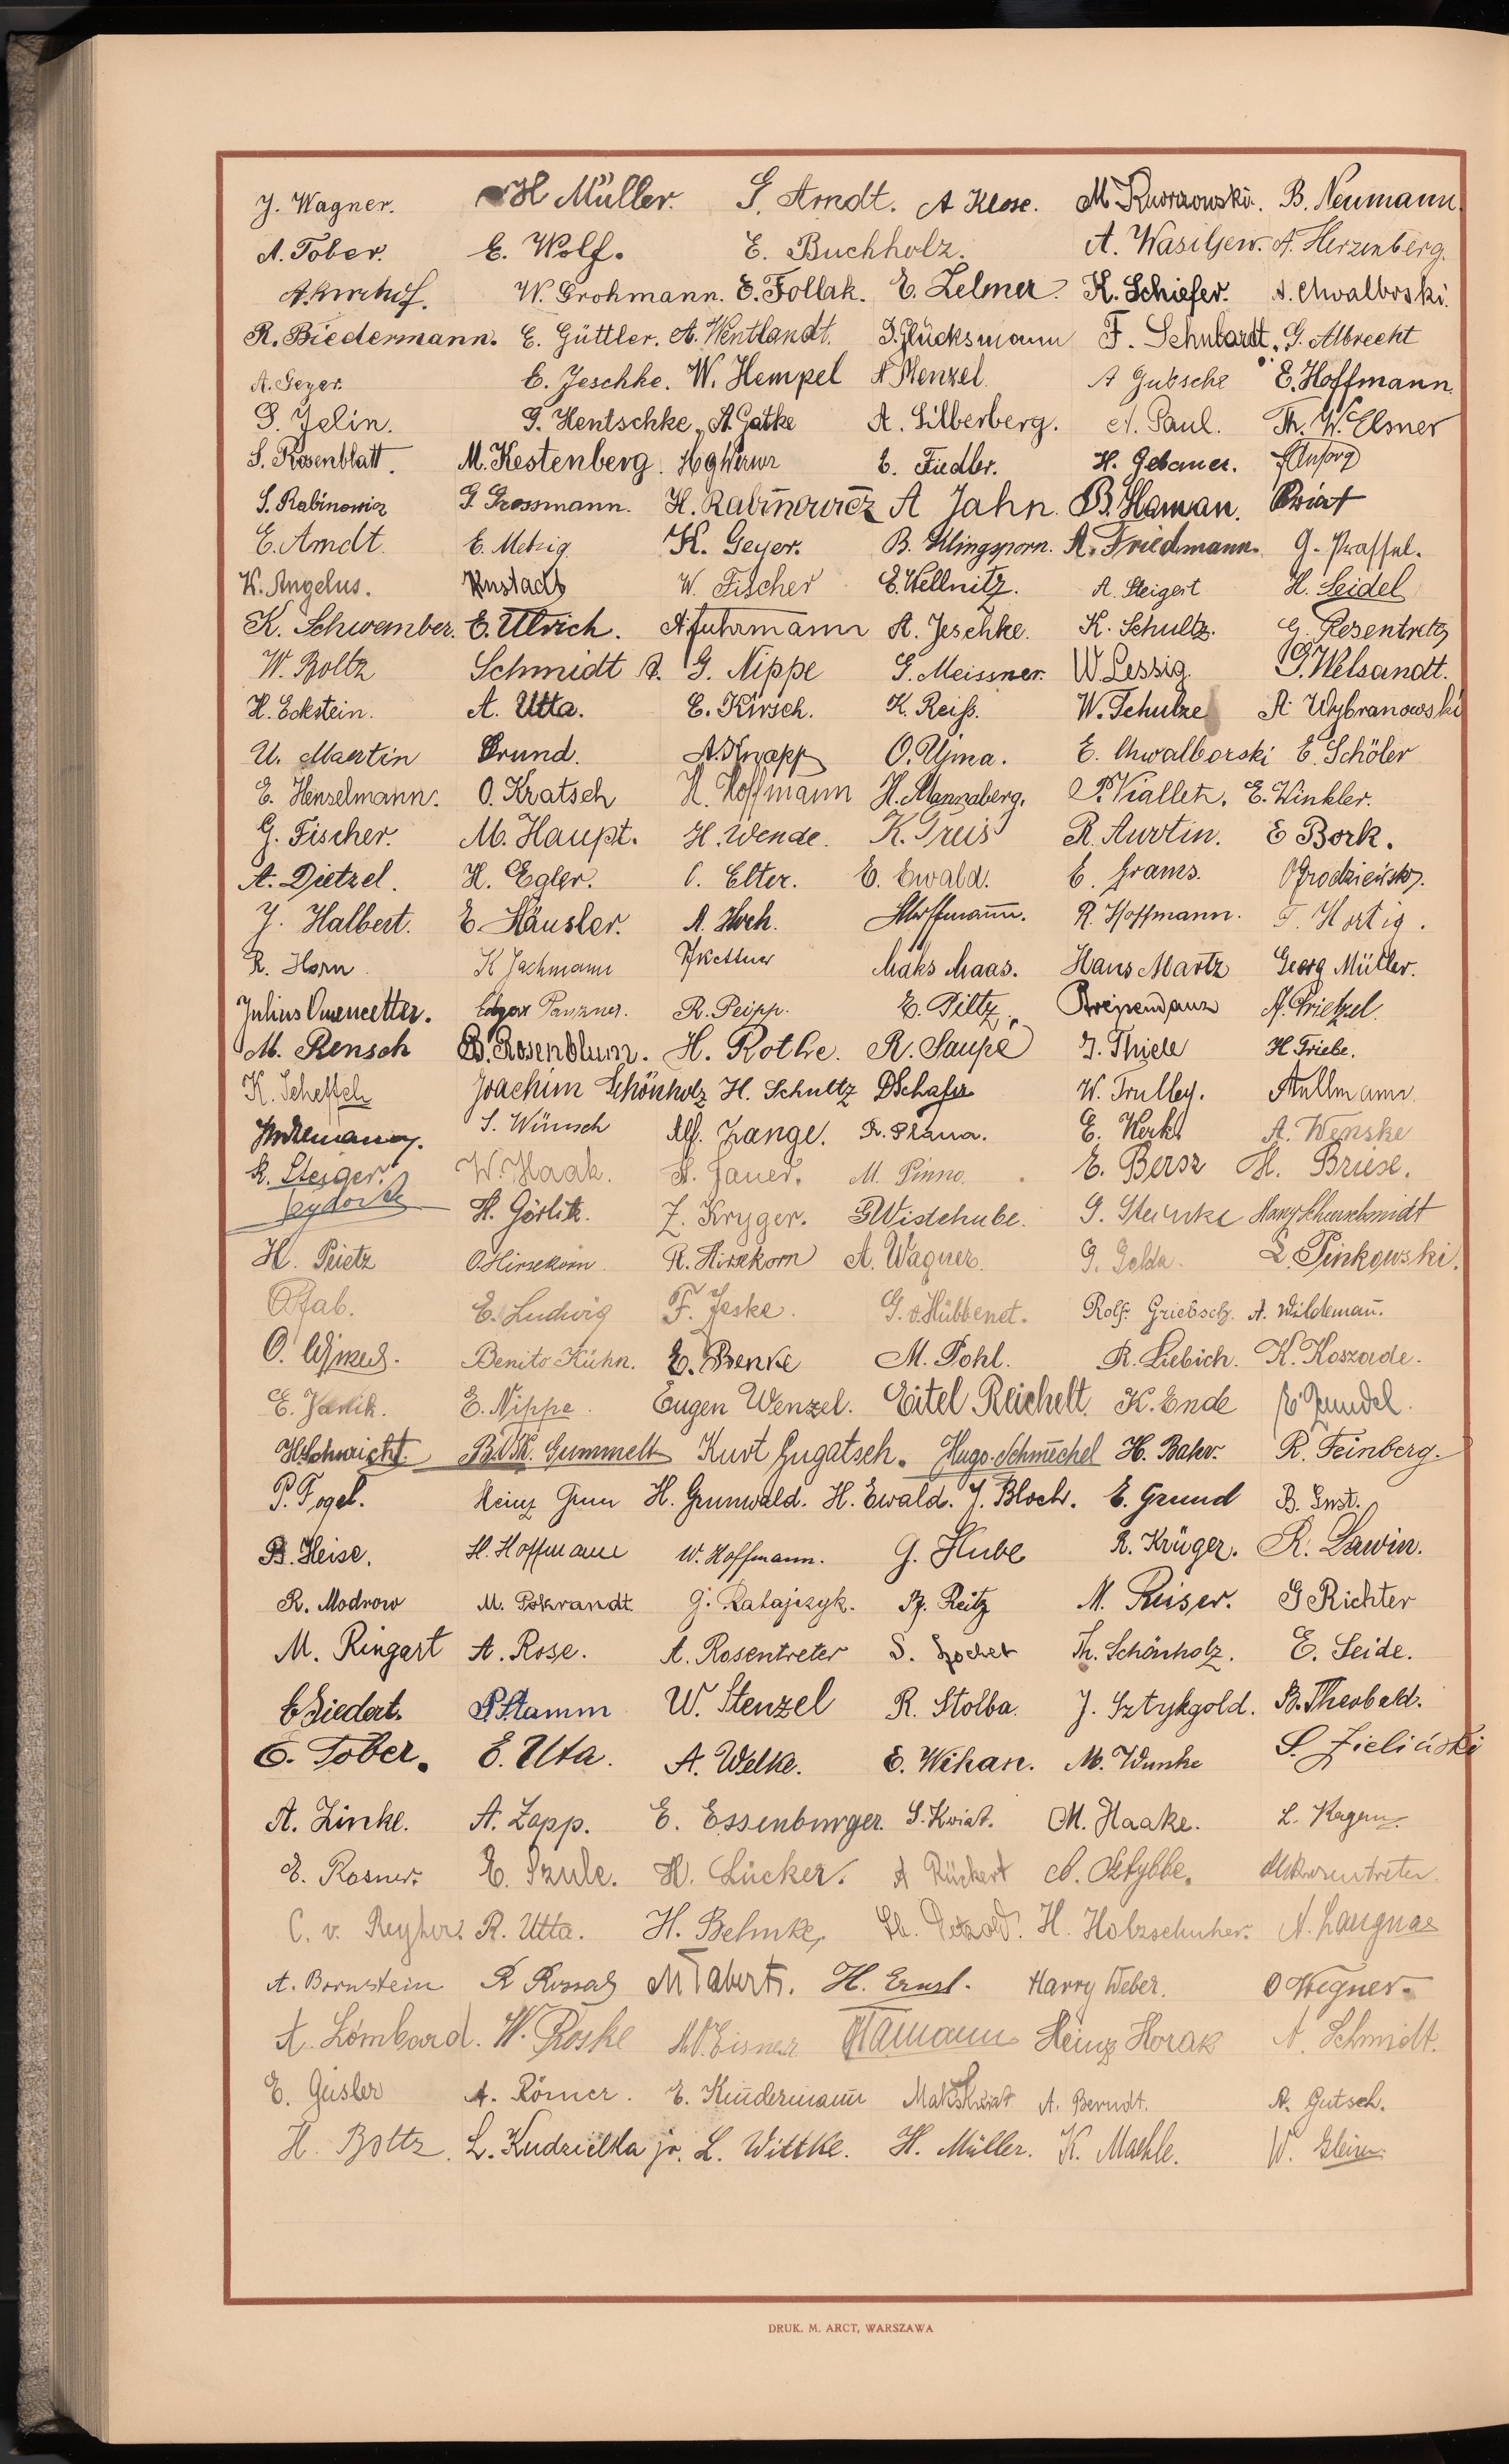 J. Wagner. H Müller. G. Arndt. A Klose. M. Kworzowski. B. Neumann.
A. Tober. E. Wolf. E. Buchholz. A. Wasiljew. A. Herzenberg.
W. Grohmann. E. Follak. E. Zelmer. K. Schiefer. A. Chwalborski.
R. Biedermann. E. Güttler. A. Wentlandt. I. Glücksmann F. Schubardt. G. Albrecht
A. Geyer. E. Jeschke. W. Hempel A Menzel. A Gutsche E. Hoffmann.
S. Jelin. G. Hentschke, A. Gatke A. Silberberg. A. Paul. Th. W. Elsner
S. Rosenblatt. M. Kestenberg. E. Fiedler. H. Gebauer.
S. Rabinowicz G. Grossmann. H. Rabinowicz A Jahn. B. Haman. Kwiat
E. Arndt. E. Metzig. K. Geyer. B. Klingsporn. A. Friedmann. G. Praffel.
K. Angelus. Knstadt W. Fischer E. Kellnitz. A. Steigert H. Seidel
K. Schwember. E. Ulrich. A. Fuhrmann A. Jeschke. K. Schultz. G. Rosentretz
W. Boltz Schmidt A. G. Nippe G. Meissner. W. Lessig. G. Welsandt.
H. Eckstein. A. Utta. E. Kirsch. K. Reiß. W. Schulze A. Wybranowski
U. Martin Grund. A. Knapp O. Ujma. E. Chwalborski E. Schöler
E. Henselmann. O. Kratsch H. Hoffmann H. Mannaberg. P. Viallet. E. Winkler.
G. Fischer. M. Haupt. H. Wende. K. Greis R. Aurtin. E Bork.
A. Dietzel. H. Egler. C. Elter. E. Ewald. E. Grams. Ogrodzieński.
J. Halbert. E. Häusler. A. Hoch. Hoffmann. R. Hoffmann. F. Hortig.
R. Horn. K Jachmann Kettner Maks Maas. Hans Martz Georg Müller.
Julius Omenzetter. Edgar Panzner. R. Peipp. E. Piltz. Preipendanz A. Prietzel.
M. Rensch B. Rosenblum. H. Rothe. R. Saupe J. Thiele H. Triebe.
K. Scheffel Joachim Schönholz H. Schultz D Schafer W. Trulley. Aullmann
S. Wünsch Alf. Lange. R. Plana. E. Kerk. A. Wenske
R. Steiger. W. Haak. A. Jauer. M. Pinno. E. Bersz H. Briese.
Seydorf H. Görlitz. Z. Kryger. G Wistehube. G. Steinke Harry Scharschmidt
H. Peietz O. Hirsekorn R. Hirsekorn A. Wagner. G. Golda. L. Pinkowski.
O Fab. E. Ludwig F. Jeske. G. v. Hübbenet. Rolf Griebsch. A. Wildemañ.
Benito Kühn. E. Benke M. Pohl. R. Liebich. K. Koszade.
E. Nippe. Eugen Wenzel. Eitel Reichelt. K. Ende E. Zundel.
H Schuricht. Gummelt Kurt Gugatsch. Hugo Schmechel H. Baher. R. Feinberg.
P. Fogel. Heinz Grun H. Grunwald. H. Ewald. J. Bloch. E. Grund B. Gust.
B. Heise. H. Hoffmann W. Hoffmann. G. Hube R. Krüger. R. Lawin.
R. Modrow M. Pokrandt. G. Ratajczyk. Reitz M. Reiser. G Richter
M. Ringart A. Rose. A. Rosentreter S. Socket Th. Schönholz. E. Seide.
E Siedert. P. Stamm W. Stenzel R. Stolba. J. Sztykgold. B. Theobald.
E. Tober. E. Uta. A. Welke. E. Wihan. M. Wunke S. Zieliński
A. Zinke. A. Zapp. E. Essenburger. S. Kwiat. M. Haake. L. Kagan.
E. Rosner. E. Szulc. H. Lücker. A Rückert A. Sztybbe. M Rosentreter.
C. v. Reyher. R. Utta. H. Behnke, H. Holzschuher. A. Laugnas
A. Bornstein M Tabert. H. Ernst. Harry Weber. O Wegner.
A. Lombard. W. Roske Eisner Tamann Heinz Horak A. Schmidt.
E. Geisler A. Römer. E. Kindermann Maks Kwiat A. Berndt. A. Gutsch.
H. Boltz. L. Kudzielka jr. L. Wittke. H. Müller. K. Maehle. W. Gleim
DRUK. M. ARCT, WARSZAWA